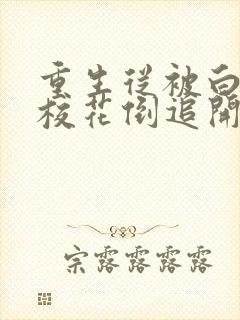 重生从被白
校花倒追开
宗露露露露